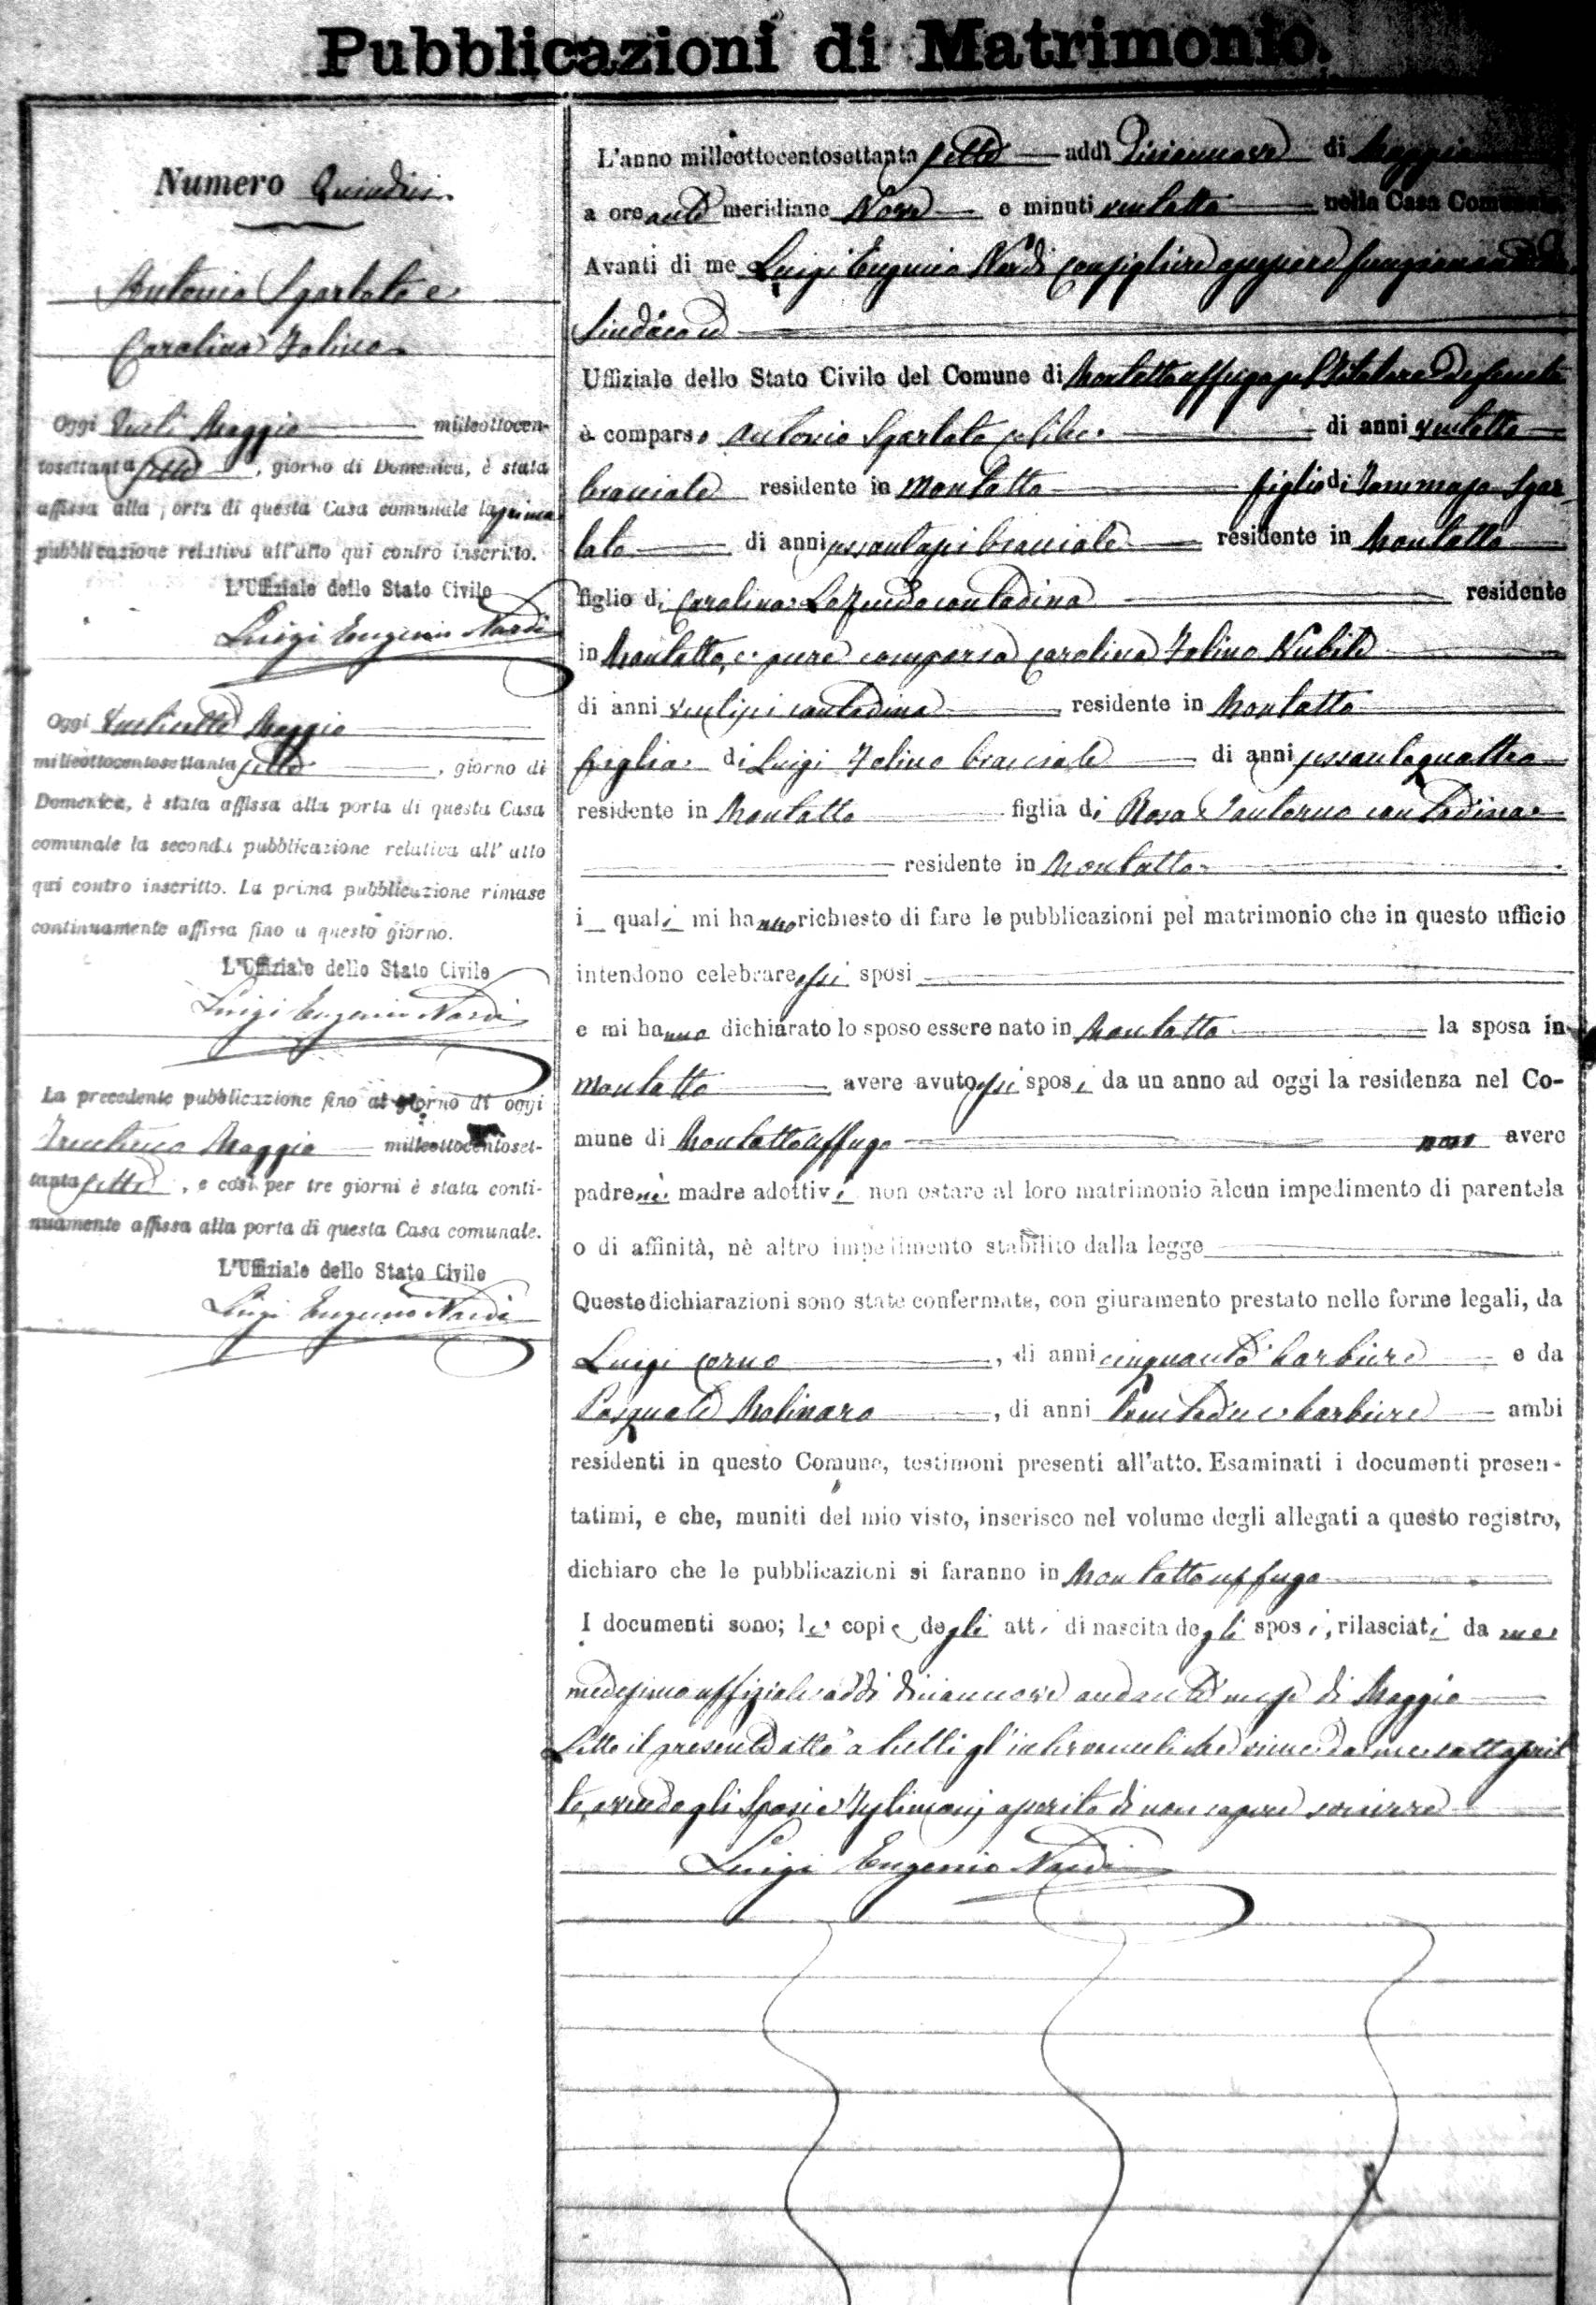 Pubblicazioni di Matrimonio.
Numero Quindici.
Antonio Sgarlato e
Carolina Folino
Oggi Venti Maggio milleottocen-
tosettanta sette, giorno di Domenica, è stata
affissa alla porta di questa Casa comunale la prima
pubblicazione relativa all'atto qui contro inscritto.
L'Uffiziale dello Stato Civile
Luigi Eugenio Nardi
Oggi Ventisette Maggio
milleottocentosettanta sette, giorno di
Domenica, è stata affissa alla porta di questa Casa
comunale la seconda pubblicazione relativa all'atto
qui contro inscritto. La prima pubblicazione rimase
continuamente affissa fino a questo giorno.
L'Uffiziale dello Stato Civile
Luigi Eugenio Nardi
La precedente pubblicazione fino al giorno di oggi
Trentuno Maggio milleottocentoset-
tanta sette, e così per tre giorni è stata conti-
nuamente affissa alla porta di questa Casa comunale.
L'Uffiziale dello Stato Civile
Luigi Eugenio Nardi
L'anno milleottocentosettanta sette addì Diciannove di Maggio
a ore anti meridiane Nove e minuti ventotto nella Casa Comunale
Avanti di me Luigi Eugenio Nardi Consigliere funzionante da
Sindaco ed
Uffiziale dello Stato Civile del Comune di Montalto Uffugo pel titolare
è comparso Antonio Sgarlato celibe di anni ventotto
bracciale residente in Montalto figlio di Tommaso Sgar-
lato di anni sessantasei bracciale residente in Montalto
figlio di Carolina contadina residente
in Montalto, e pure comparsa Carolina Folino Nubile
di anni ventisei contadina residente in Montalto
figlia di Luigi Folino bracciale di anni sessantaquattro
residente in Montalto figlia di Rosa Santorno contadina
residente in Montalto
i quali mi hanno richiesto di fare le pubblicazioni pel matrimonio che in questo ufficio
intendono celebrare essi sposi
e mi hanno dichiarato lo sposo essere nato in Montalto la sposa in
Montalto avere avuto essi sposi da un anno ad oggi la residenza nel Co-
mune di Montalto Uffugo non avere
padre nè madre adottivi non ostare al loro matrimonio alcun impedimento di parentela
o di affinità, nè altro impedimento stabilito dalla legge
Queste dichiarazioni sono state confermate, con giuramento prestato nelle forme legali, da
Luigi Corno, di anni cinquanta barbiere e da
Pasquale Molinaro, di anni trentadue barbiere ambi
residenti in questo Comune, testimoni presenti all'atto. Esaminati i documenti presen-
tatimi, e che, muniti del mio visto, inserisco nel volume degli allegati a questo registro,
dichiaro che le pubblicazioni si faranno in Montalto Uffugo
I documenti sono; le copie degli atti di nascita degli sposi, rilasciati da me
medesimo uffiziale addì diciannove andante mese di Maggio
Letto il presente atto a tutti gl'intervenuti che viene da me sottoscrit
to, avendo gli Sposi e Testimoni asserito di non sapere scrivere
Luigi Eugenio Nardi